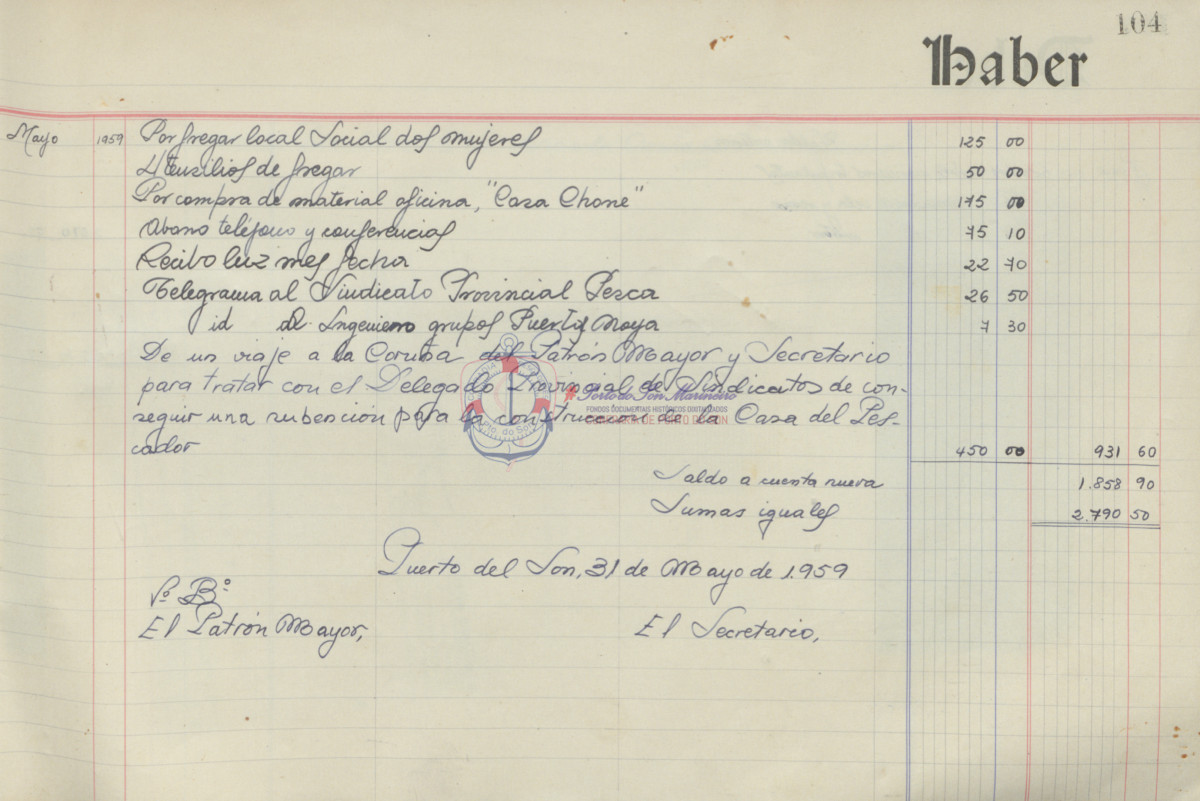 104
Haber
Mayo 1959 Por fregar local Social dos mujeres 125 00
Utensilios de fregar 50 00
Por compra de material oficina, "Casa Choné" 175 00
Abono teléfono y conferencias 75 10
Recibo luz mes fecha 22 70
Telegrama al Sindicato Provincial Pesca 26 50
id al Ingeniero grupos Puertos Noya 7 30
De un viaje a la Coruña del Patrón Mayor y Secretario
para tratar con el Delegado Provincial de Sindicatos de con-
seguir una subención para la construccion de la Casa del Pes-
cador 450 00 931 60
Saldo a cuenta nueva 1.858 90
Sumas iguales 2.790 50
Puerto del Son, 31 de Mayo de 1.959
Vº Bº
El Patrón Mayor, El Secretario,
# Porto do Son Marineiro
FONDOS DOCUMENTAIS HISTÓRICOS DIXITALIZADOS
DE PORTO DO SON
Pto. do Son